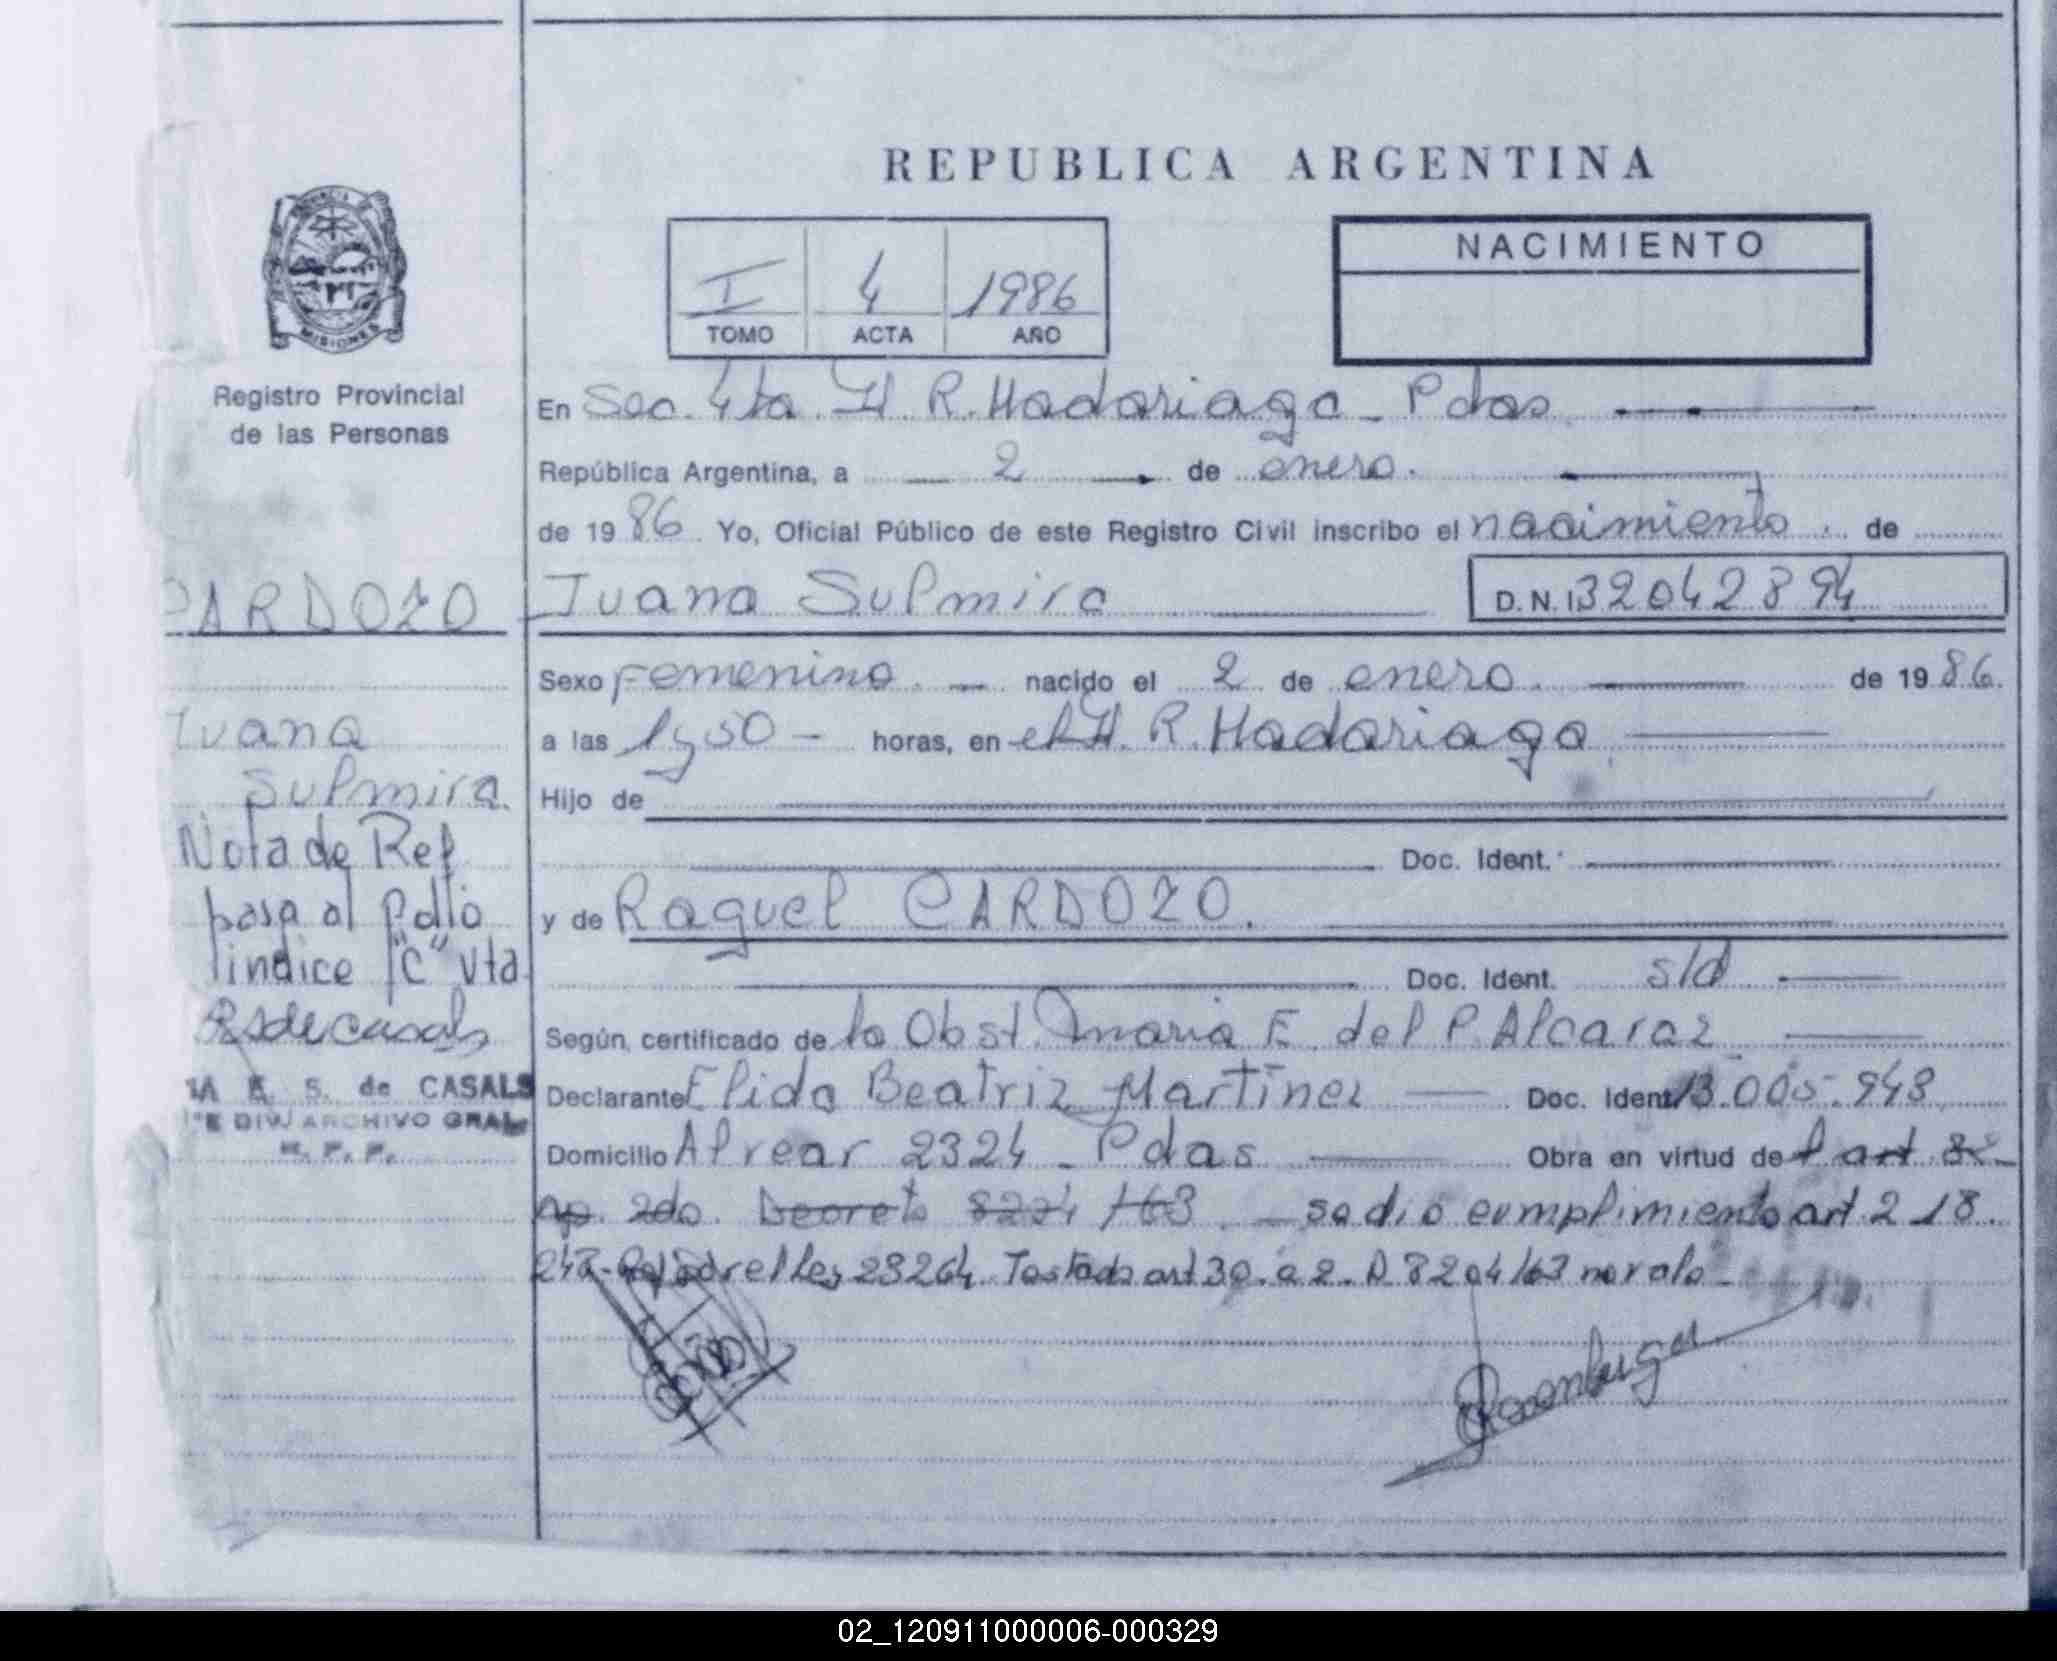 REPUBLICA ARGENTINA
NACIMIENTO
I 4 1986
TOMO ACTA AÑO
MISIONES
Registro Provincial
de las Personas
En Sec. 4ta H R. Madariaga - Pdas
República Argentina, a 2 de enero.
de 19 86. Yo, Oficial Público de este Registro Civil inscribo el nacimiento. de
CARDOZO
Juana Sulmira
D. N. I 32042894
Sexo Femenino. - nacido el 2 de enero. de 19 86.
Juana
Sulmira.
a las 1y50 - horas, en el H. R. Madariaga
Hijo de
Nota de Ref
pasa al folio
indice "C" vta
Doc. Ident.
y de Raquel CARDOZO.
Doc. Ident. s/d
Según certificado de la Obst. Maria E. del P. Alcaraz
Declarante Elida Beatriz Martínez Doc. Ident. 13.005.943
E. S. de CASALS
DIV. ARCHIVO GRAL
R. P. P.
Domicilio Alvear 2324 - Pdas Obra en virtud del art 3-
2do. Decreto 8204/63. se dió cumplimiento art. 2 18.
ley 23264. Testado art 30. a 2. D 8204/63 no vale
02_120911000006-000329